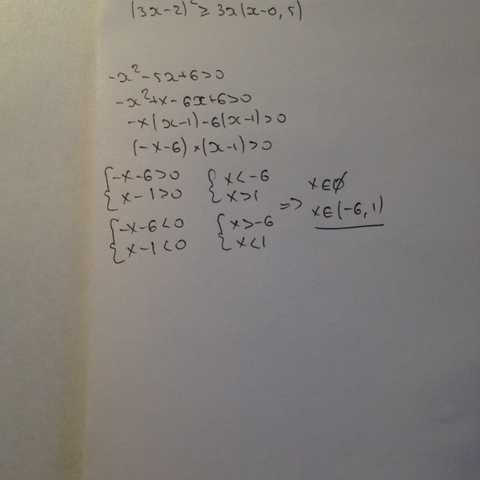 (3x-2)² ≥ 3x(x-0,5)
-x²-5x+6>0
-x²+x-6x+6>0
-x(x-1)-6(x-1)>0
(-x-6)×(x-1)>0
{-x-6>0 {x<-6 => x∈∅
{x-1>0 {x>1 x∈(-6,1)
{-x-6<0 {x>-6
{x-1<0 {x<1